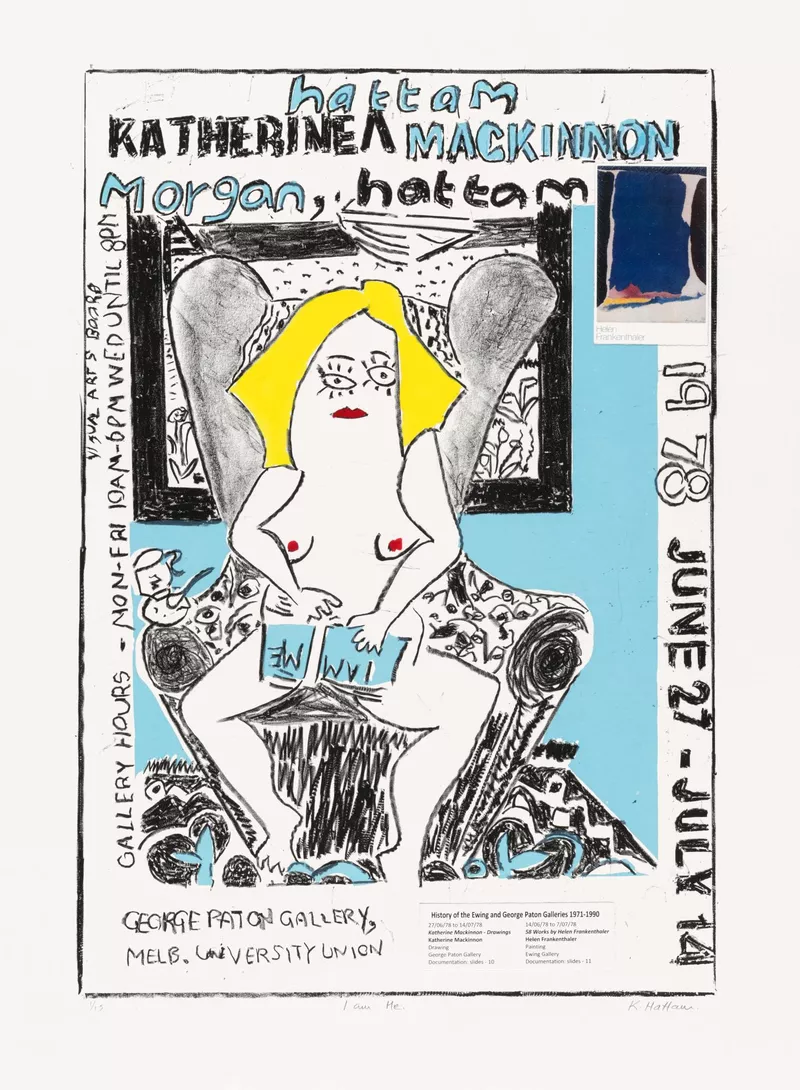 hattam
KATHERINE Λ MACKINNON
Morgan, hattam
Helen
Frankenthaler
VISUAL ARTS BOARD
GALLERY HOURS - MON-FRI 10AM-6PM WED UNTIL 8PM
1978 JUNE 27 - JULY 14
I AM ME
GEORGE PATON GALLERY,
MELB. UNIVERSITY UNION
History of the Ewing and George Paton Galleries 1971-1990
27/06/78 to 14/07/78
Katherine Mackinnon - Drawings
Katherine Mackinnon
Drawing
George Paton Gallery
Documentation: slides - 10
14/06/78 to 7/07/78
58 Works by Helen Frankenthaler
Helen Frankenthaler
Painting
Ewing Gallery
Documentation: slides - 11
1/15
I am Me.
K. Hattam